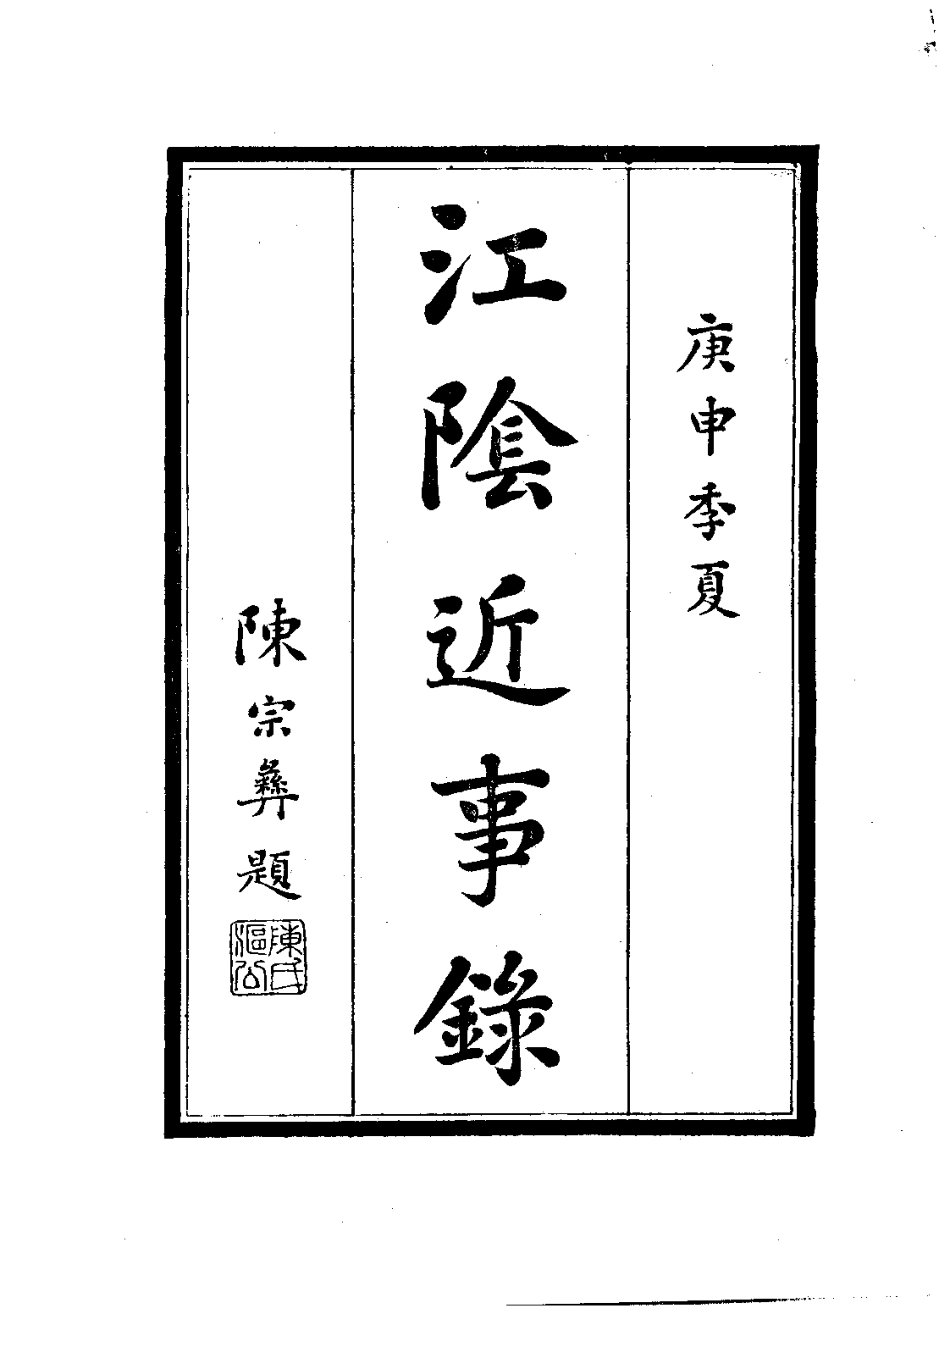 庚申季夏
江陰近事錄
陳宗彝題
陳氏
漚公